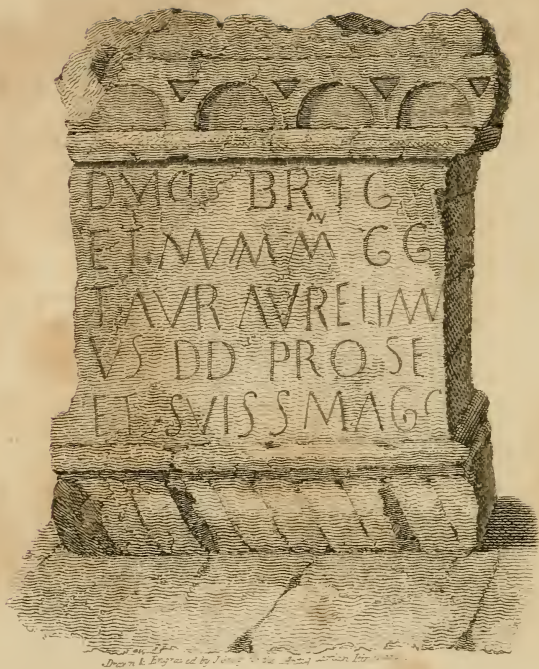 DVCI BRIG
ET NVMM GG
T AVR AVRELIAN
VS DD PRO SE
ET SVIS SMAGS
Drawn & Engraved by